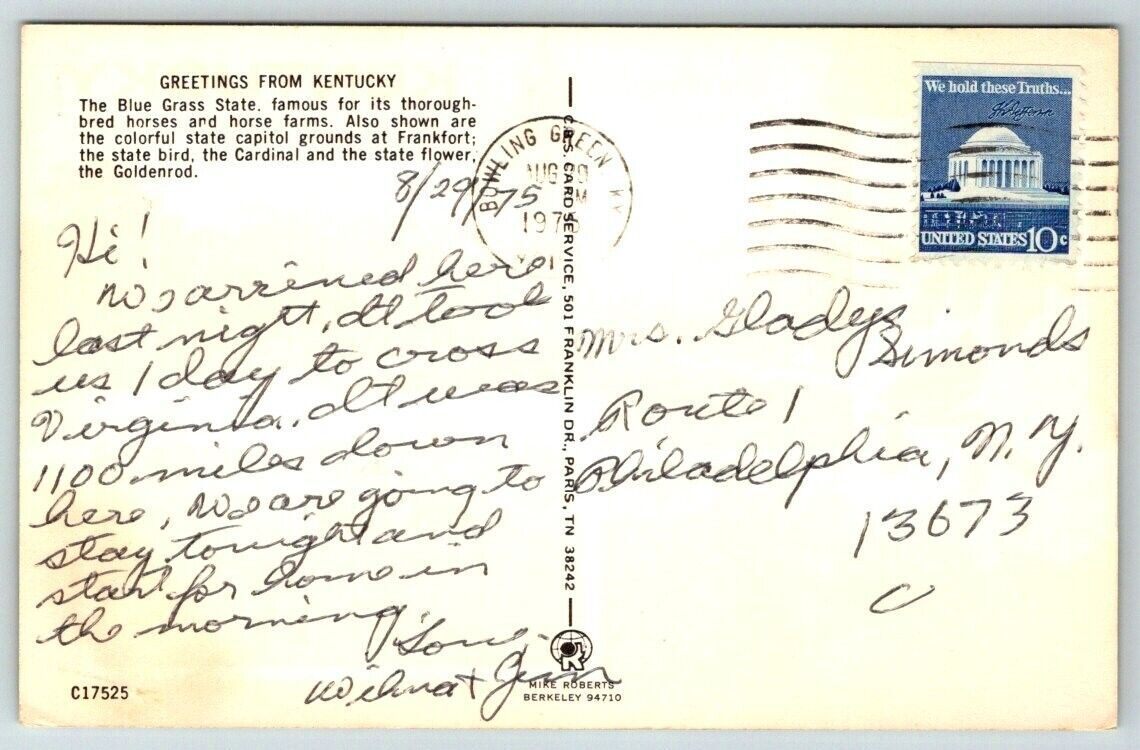 GREETINGS FROM KENTUCKY
The Blue Grass State, famous for its thorough-
bred horses and horse farms. Also shown are
the colorful state capitol grounds at Frankfort;
the state bird, the Cardinal and the state flower,
the Goldenrod.
8/29/75
Hi!
We arrived here
last night, It took
us 1 day to cross
Virginia. It was
1100 miles down
here, We are going to
stay tonight and
start for home in
the morning.
Love
Wilma & Jim
C17525
C.P.S. CARD SERVICE, 501 FRANKLIN DR., PARIS, TN 38242
MIKE ROBERTS
BERKELEY 94710
BOWLING GREEN, KY
AUG
PM
1975
We hold these Truths...
UNITED STATES 10c
Mrs. Gladys
Simonds
Route 1
Philadelphia, N.Y.
13673